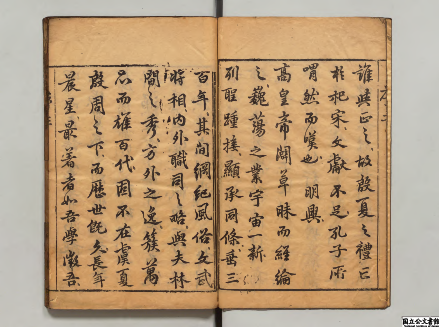 誰與正之故殷夏之禮已
於杞宋文獻不足孔子所
喟然而嘆也明興
高皇帝闢草昧而經綸
之巍蕩之業宇宙一新
列聖踵接顯承同條歷三
百年其間綱紀風俗文武
將相內外職司之略與夫林
間之秀方外之逸簇萬
品而雄百代固不在虞夏
殷周之下而歷世既久長年
晨星最著者如吾學
吾
序二
國立公文書館